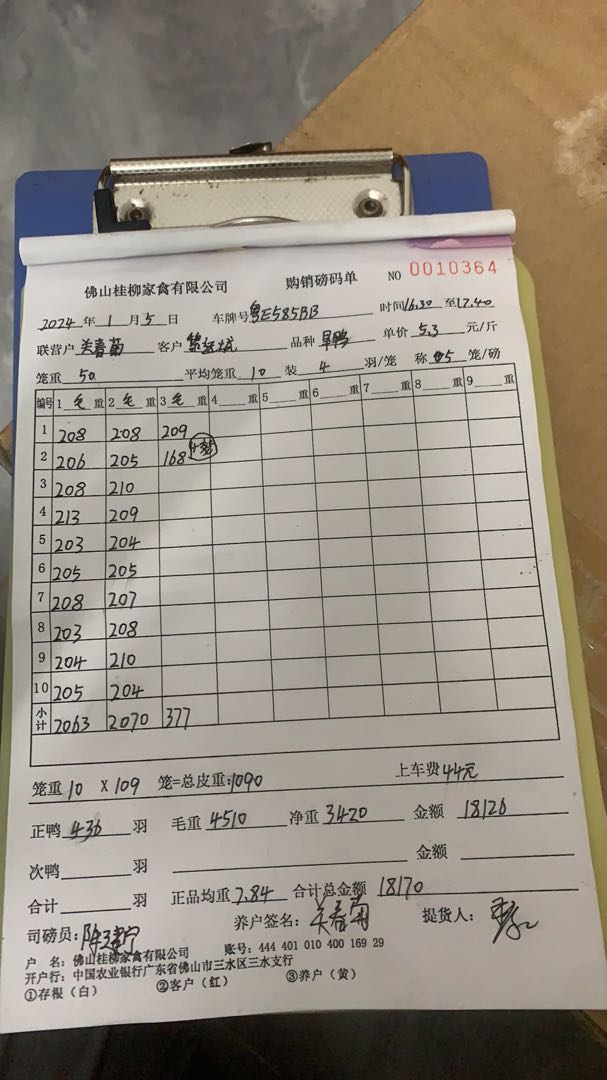 佛山桂柳家禽有限公司 购销磅码单 NO 0010364
2024 年 1 月 5 日 车牌号粤E585BB 时间16.30 至17.40
联营户 关春菊 客户 品种 旱鸭 单价 5.3 元/斤
笼重 50 平均笼重 10 装 4 羽/笼 称 5 笼/磅
编号 1 毛 重 2 毛 重 3 毛 重 4 重 5 重 6 重 7 重 8 重 9 重
1 208 208 209
2 206 205 168
3 208 210
4 213 209
5 203 204
6 205 205
7 208 207
8 203 208
9 204 210
10 205 204
小计 2063 2070 377
笼重 10 X 109 笼=总皮重:1090 上车费 44元
正鸭 436 羽 毛重 4510 净重 3420 金额 18126
次鸭 羽 金额
合计 羽 正品均重 7.84 合计总金额 18170
司磅员: 养户签名: 关春菊 提货人:
户 名: 佛山桂柳家禽有限公司 账号: 444 401 010 400 169 29
开户行: 中国农业银行广东省佛山市三水区三水支行
①存根（白） ②客户（红） ③养户（黄）